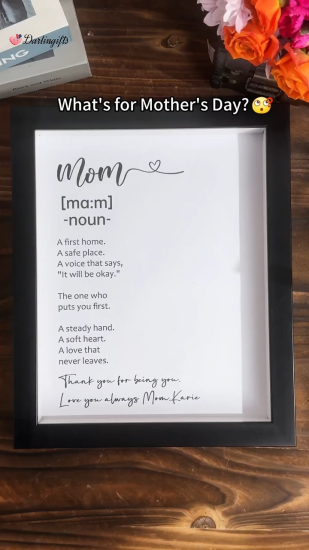 Darlingifts
ING
What's for Mother's Day? 🫢
Mom
[ma:m]
-noun-
A first home.
A safe place.
A voice that says,
"It will be okay."
The one who
puts you first.
A steady hand.
A soft heart.
A love that
never leaves.
Thank you for being you.
Love you always Mom.Karie